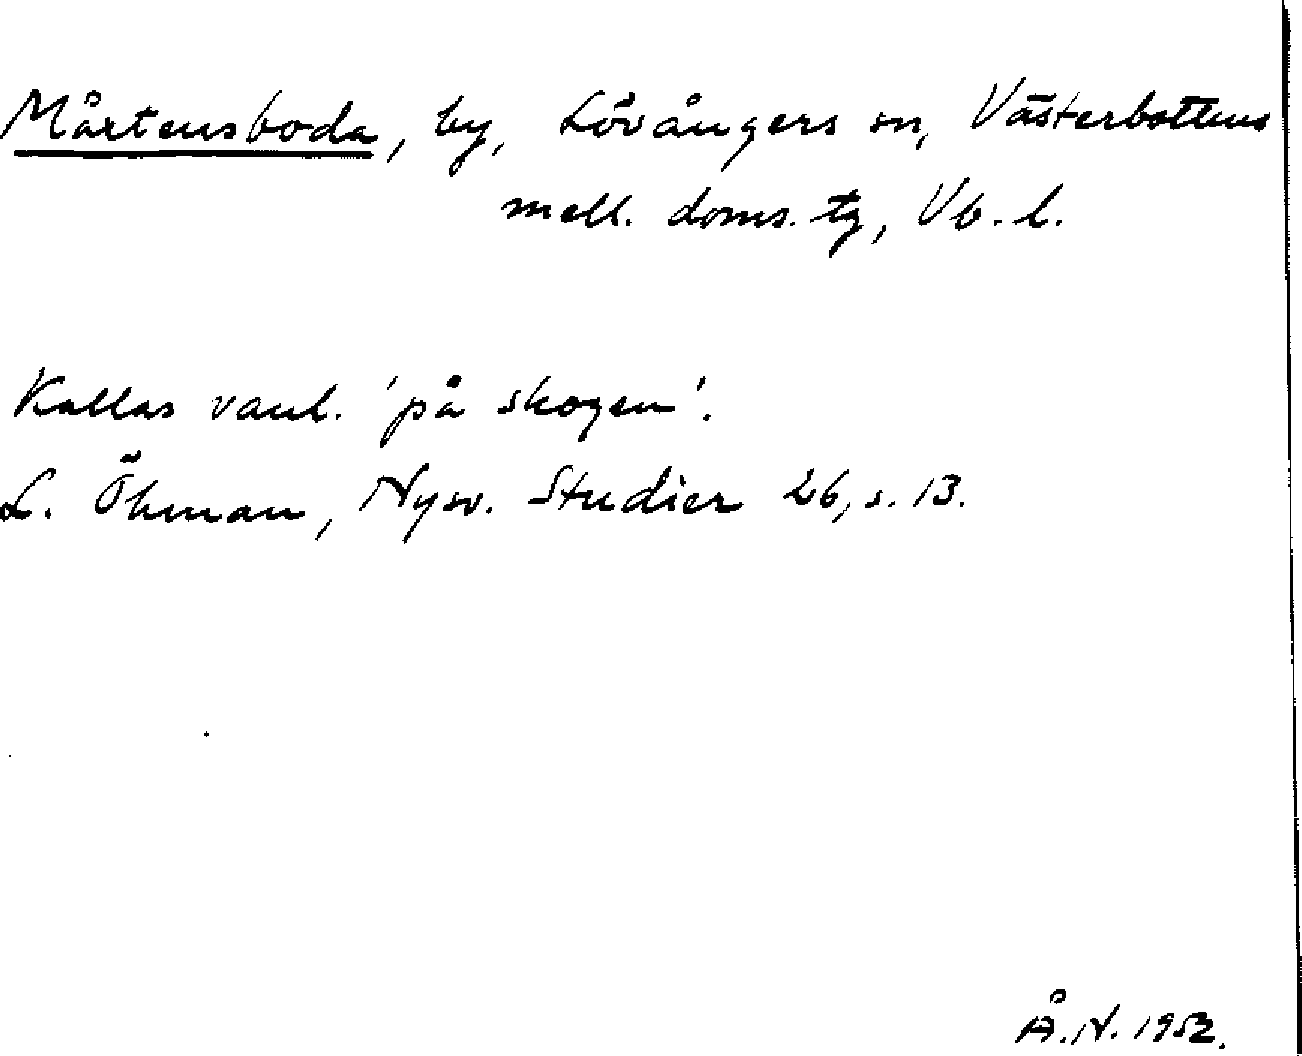 Mårtensboda, by, Lövångers sn, Västerbottens
mell. doms. tg, Vb. l.
Kallas vanl. 'på skogen'.
L. Öhman, Nysv. Studier 26, s. 13.
Å. N. 1952.